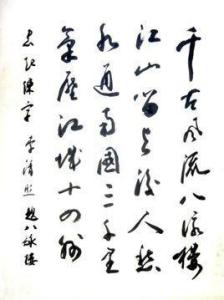 千古風流八詠樓
江山留與後人愁
水通南國三千里
氣壓江城十四州
李清照 題八詠樓